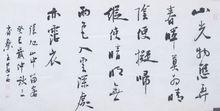 山光物態弄
春暉莫為輕
陰便擬歸
縱使晴明無
雨色入雲深處
亦霑衣
張旭山中留客